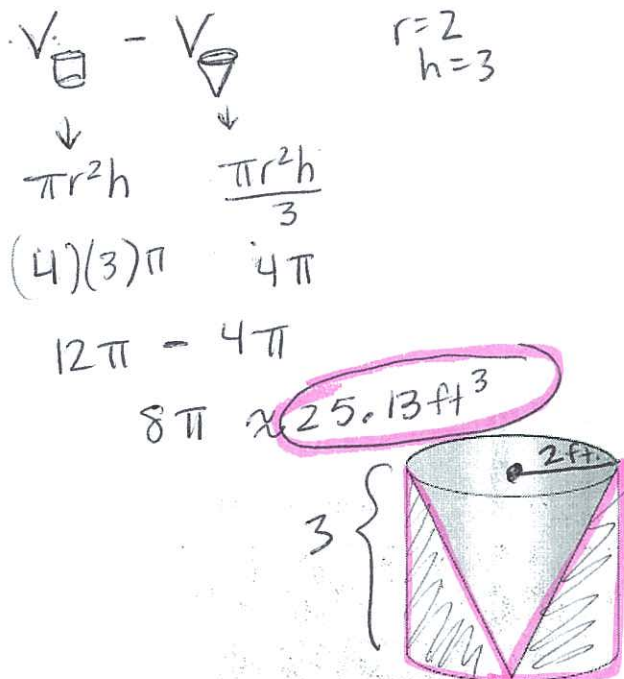 V - V
r=2
h=3
↓ ↓
πr²h πr²h/3
(4)(3)π 4π
12π - 4π
8π ≈ 25.13 ft³
2ft.
3 {